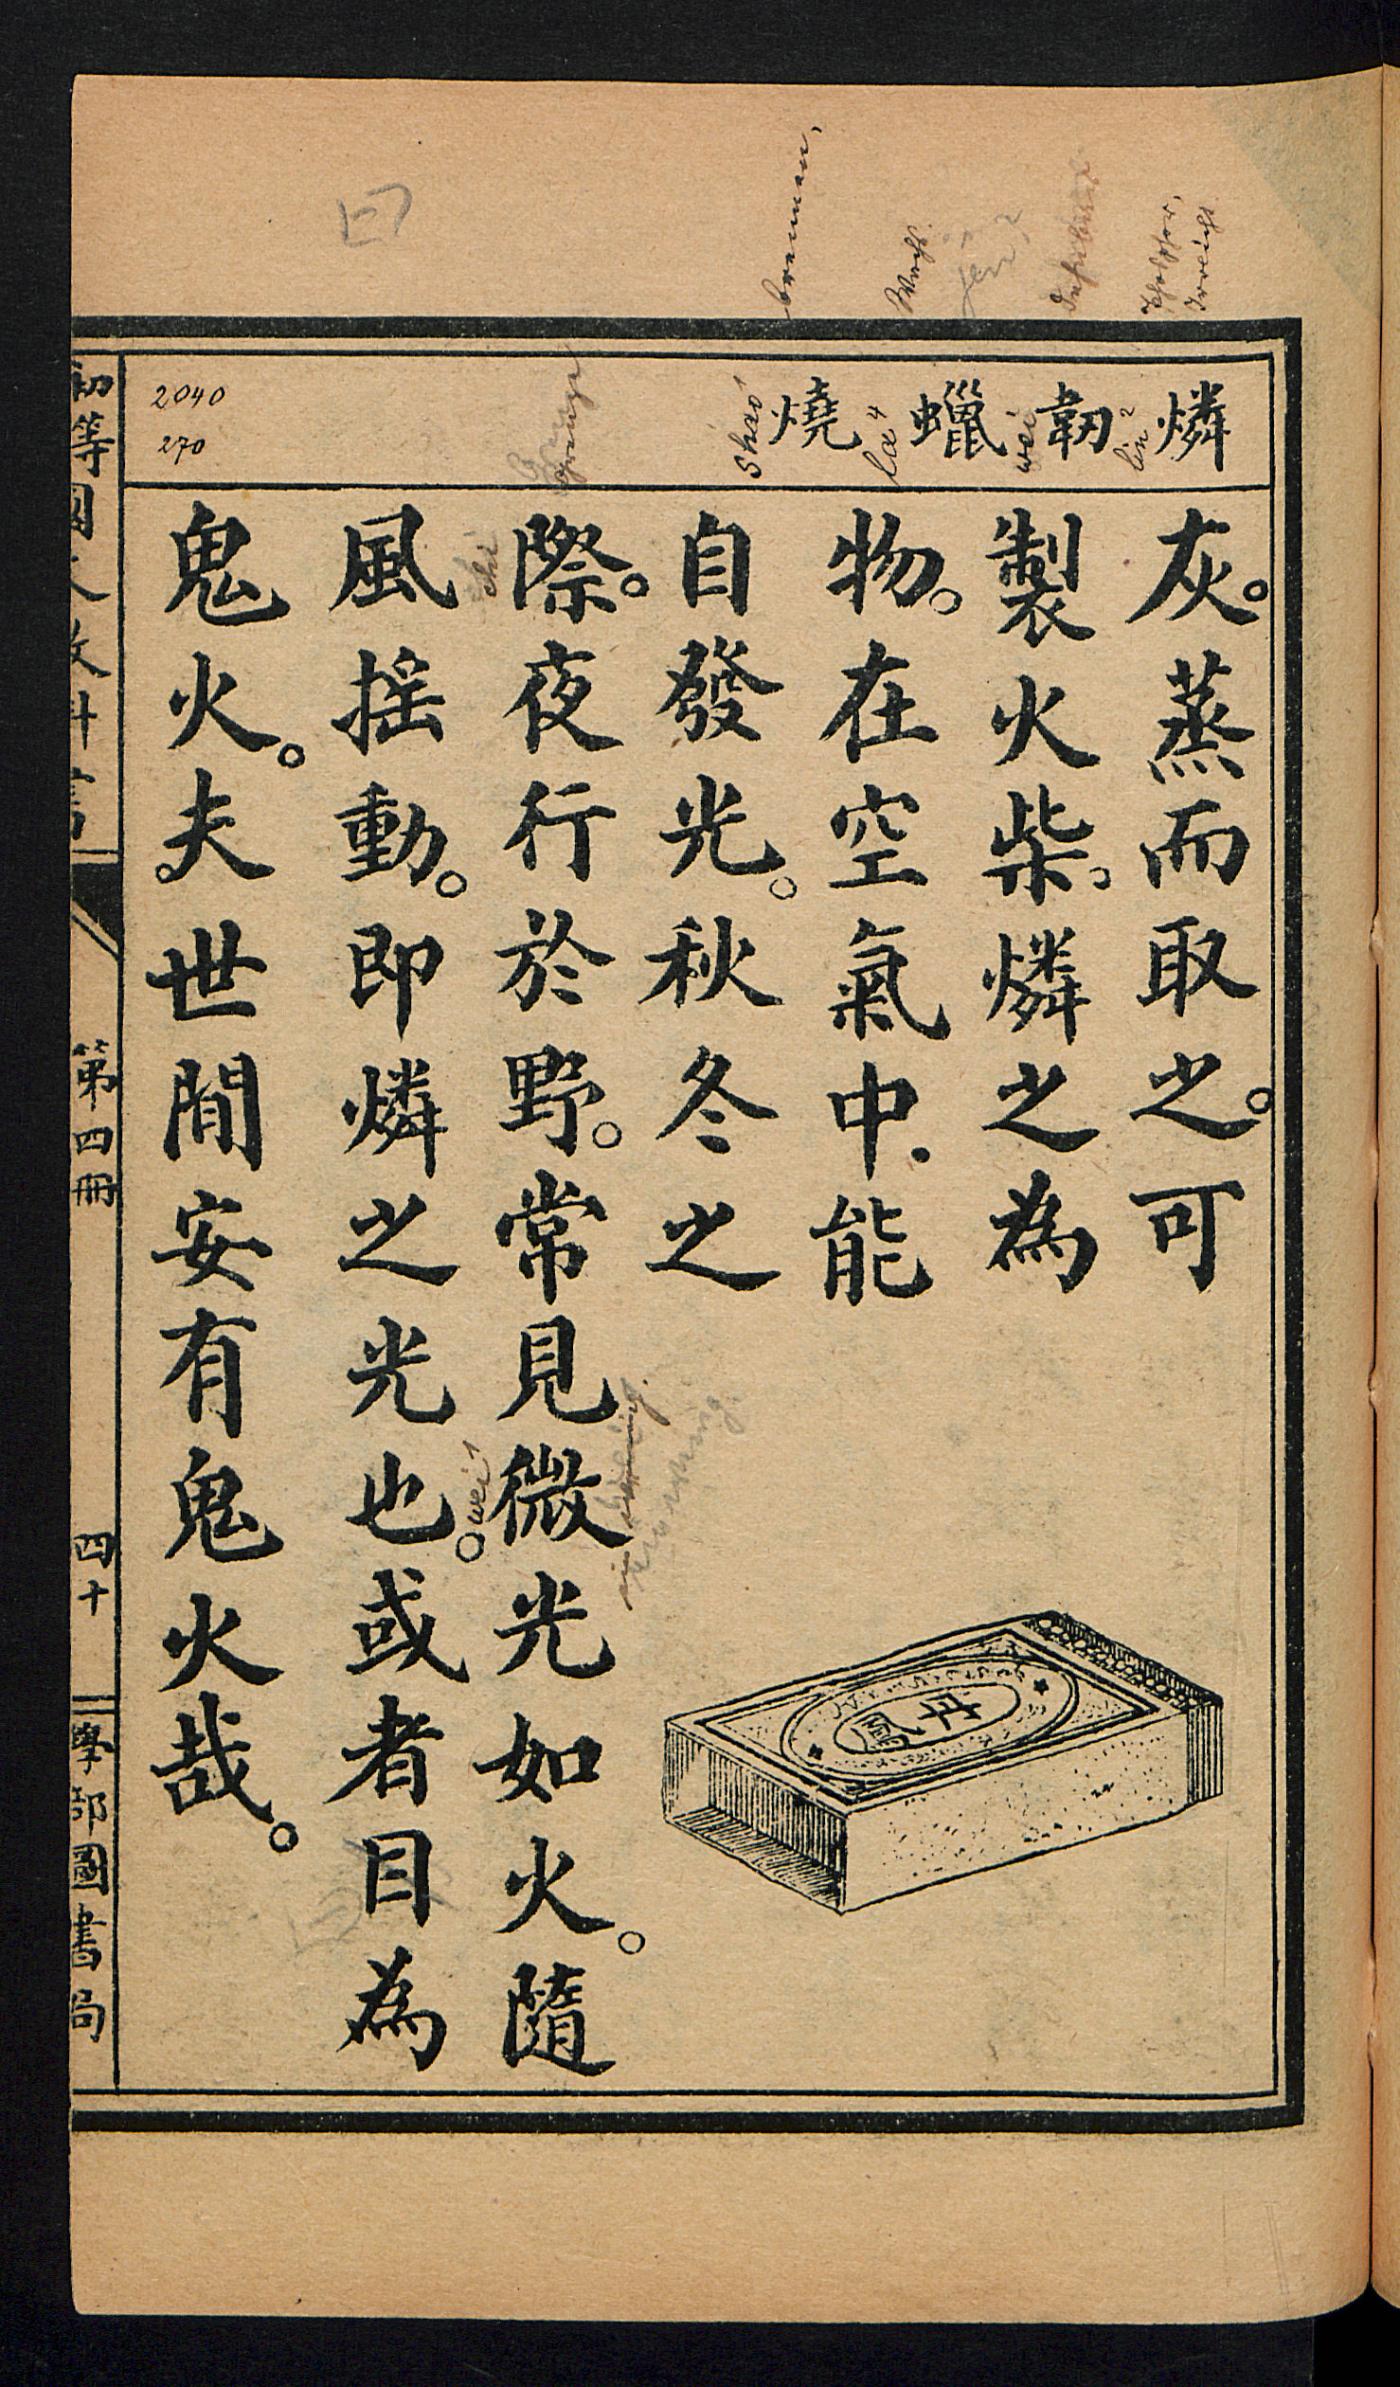 燐韌蠟燒
灰。蒸而取之。可
製火柴。燐之為
物。在空氣中.能
自發光。秋冬之
際。夜行於野。常見微光如火。隨
風搖動。即燐之光也。或者目為
鬼火。夫世間安有鬼火哉。
初等國文教科書
第四冊
四十
學部圖書局
brennen,
Phosphor,
Irrlicht
shao¹
la⁴
lin²
wei¹
2040
270